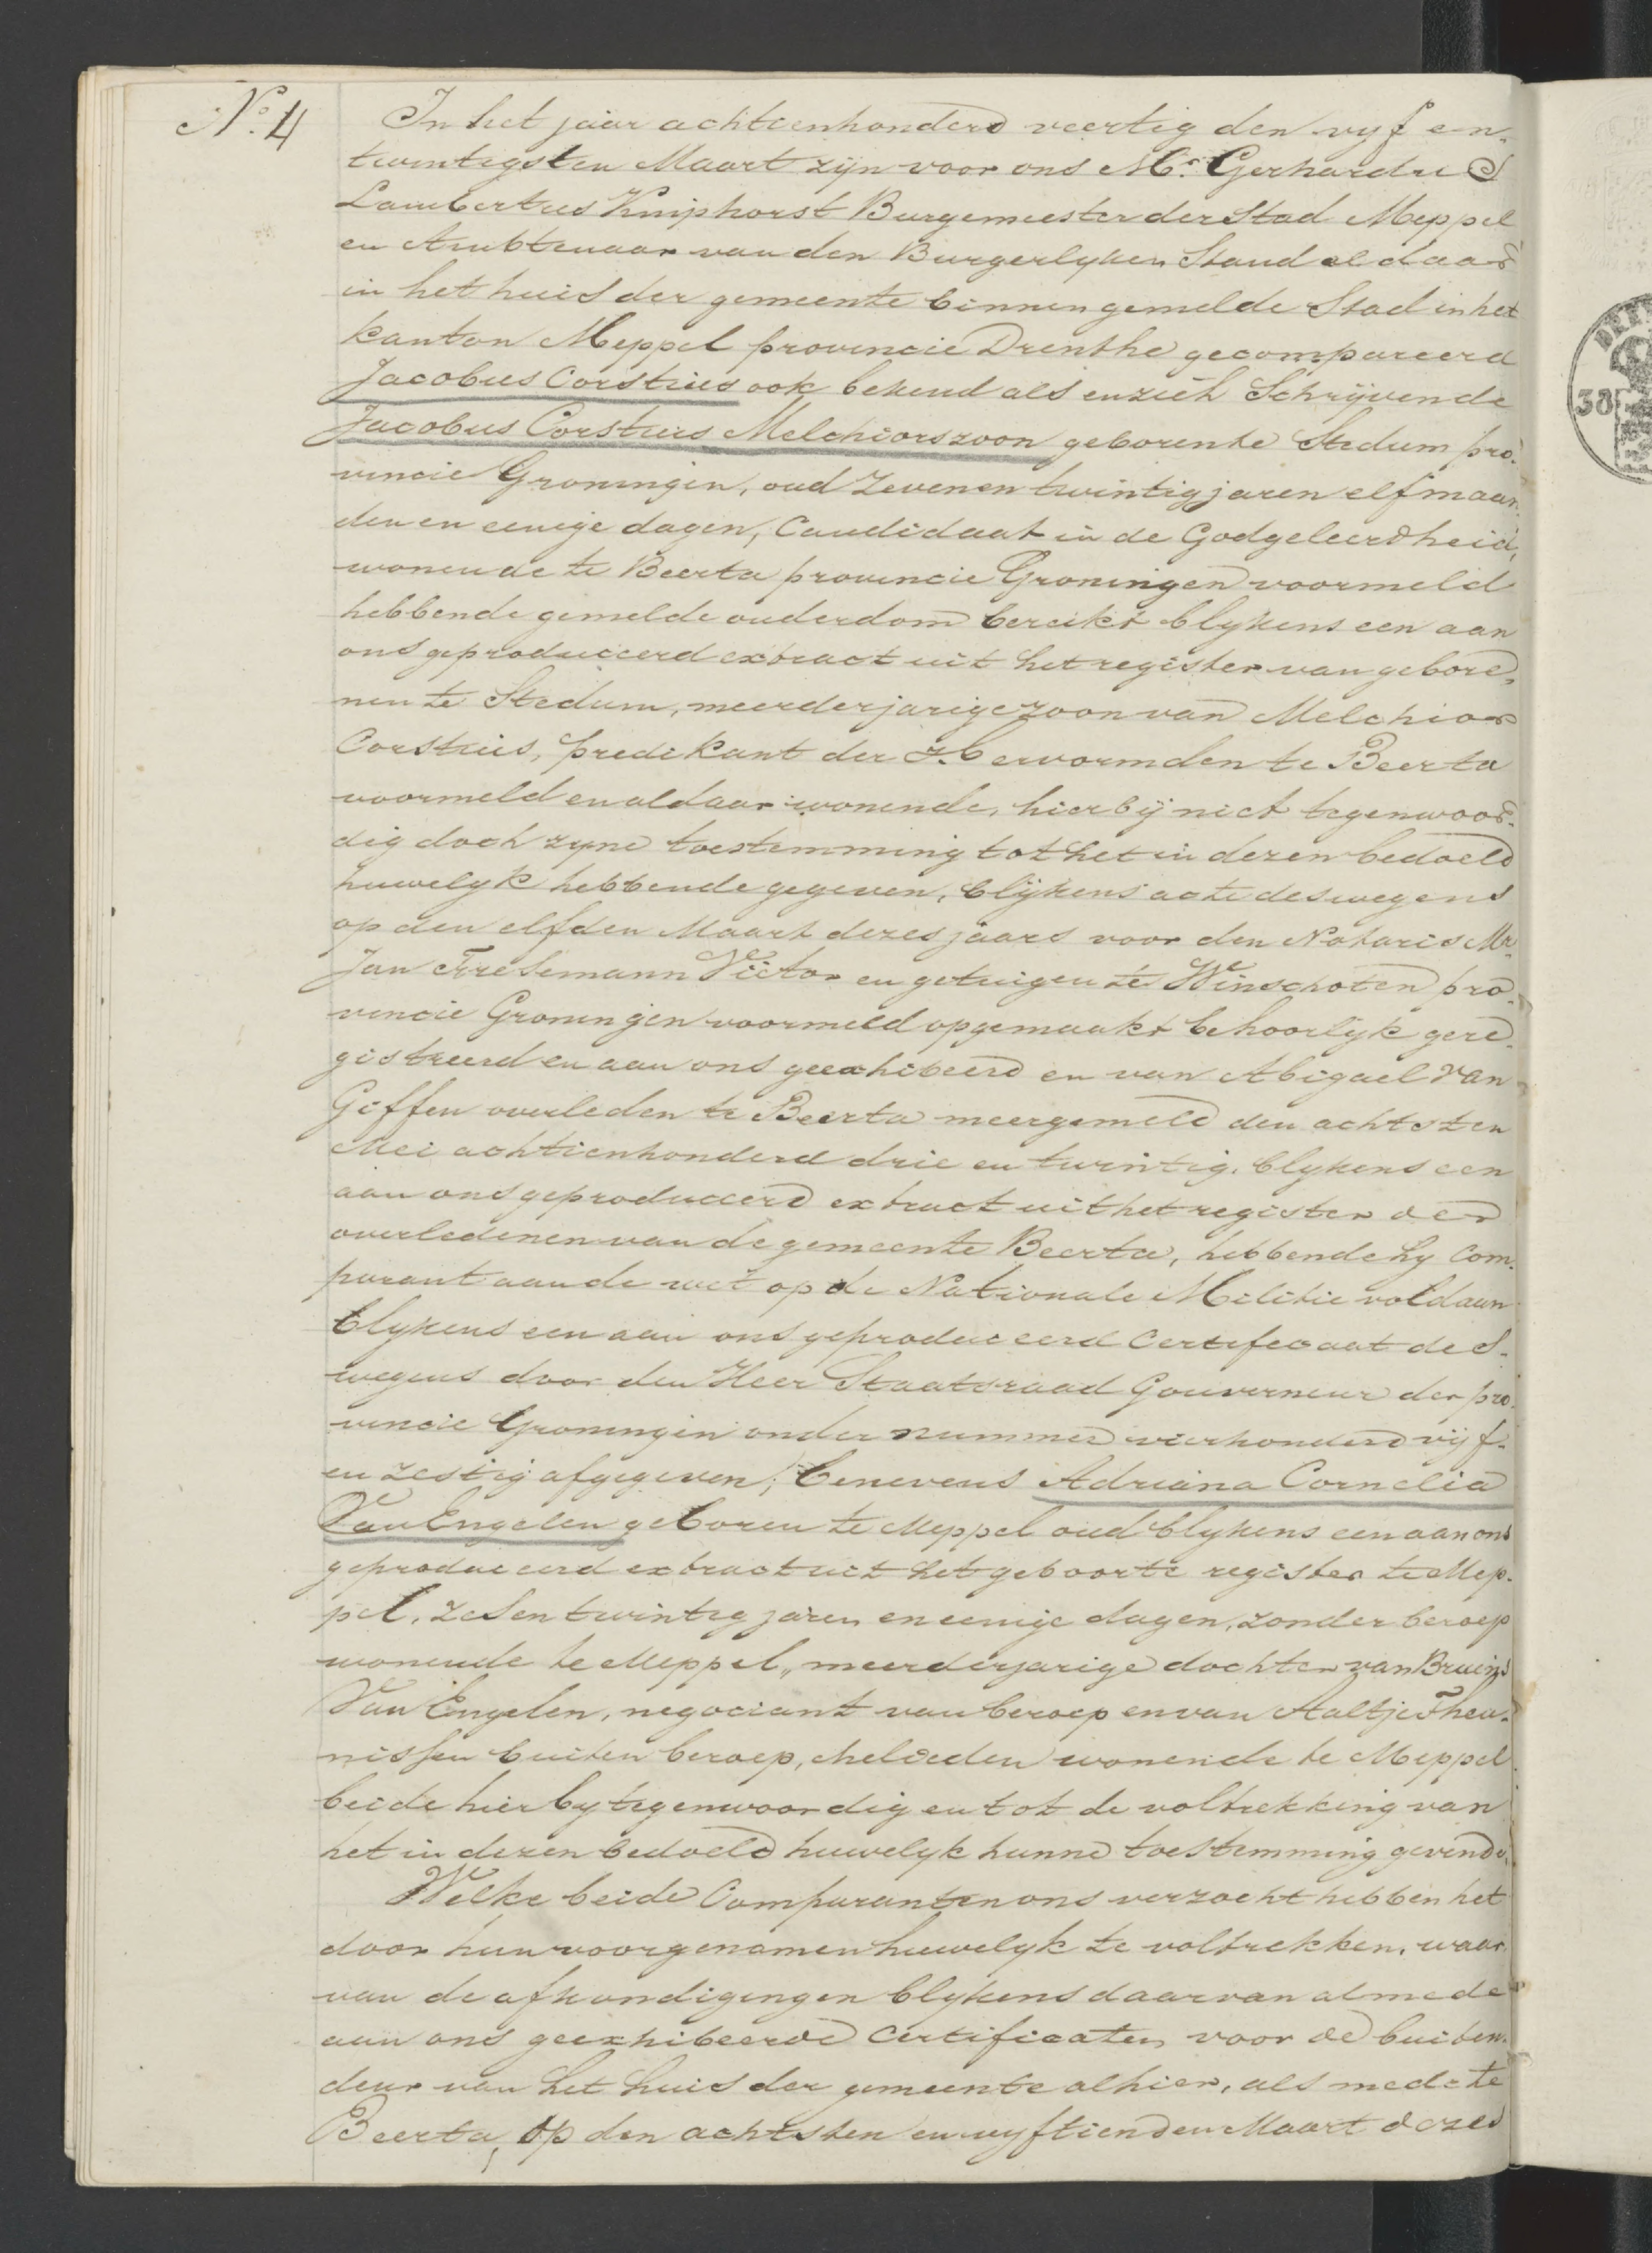 No. 4
In het jaar achttienhonderd veertig den vyf en-
twintigsten Maart zijn voor ons Mr. Gerhardus
Lambertus Kniphorst Burgemeester der Stad Meppel
en Ambtenaar van den Burgerlyken Stand aldaar
in het huis der gemeente binnen gemelde Stad in het
kanton Meppel provincie Drenthe gecompareerd
Jacobus Corstius ook bekend als en zich Schrijvende
Jacobus Corstius Melchiorszoon geboren te Stedum pro-
vincie Groningen, oud Zevenentwintig jaren elf maan-
den en eenige dagen, Candidaat in de Godgeleerdheid,
wonende te Beerta provincie Groningen voormeld
hebbende gemelde ouderdom bereikt blykens een aan
ons geproduceerd extract uit het register van gebore-
nen te Stedum, meerderjarige zoon van Melchior
Corstius, predikant der Hervormden te Beerta
voormeld en aldaar wonende, hierbij niet tegenwoor-
dig doch zyne toestemming tot het in dezen bedoeld
huwelyk hebbende gegeven, blijkens acte deswegens
op den elfden Maart dezes jaars voor den Notaris Mr.
Jan Fresemann Viëtor en getuigen te Winschoten pro-
vincie Groningen voormeld opgemaakt behoorlijk gere-
gistreerd en aan ons geexhibeerd en van Abigael van
Giffen overleden te Beerta meergemeld den achtsten
Mei achttienhonderd drie en twintig, blykens een
aan ons geproduceerd extract uit het register der
overledenen van de gemeente Beerta, hebbende hy Com-
parant aan de wet op de Nationale Militie voldaan
blykens een aan ons geproduceerd Certificaat des-
wegens door den Heer Staatsraad Gouverneur der pro-
vincie Groningen onder nummer vierhonderd vijf-
en zestig afgegeven; benevens Adriana Cornelia
Van Engelen geboren te Meppel oud blykens een aan ons
geproduceerd extract uit het geboorte register te Mep-
pel, zesentwintig jaren en eenige dagen, zonder beroep
wonende te Meppel, meerderjarige dochter van Bruins
Van Engelen, negociant van beroep en van Aaltje Theu-
nissen buiten beroep, ehelieden wonende te Meppel
beide hier by tegenwoordig en tot de voltrekking van
het in dezen bedoeld huwelyk hunne toestemming gevende,
Welke beide Comparanten ons verzocht hebben het
door hun voorgenomen huwelyk te voltrekken, waar
van de afkondigingen blykens daarvan almede
aan ons geexhibeerde Certificaten voor de buiten-
deur van het huis der gemeente alhier, als mede te
Beerta, op den achtsten en vyftienden Maart dezes
38